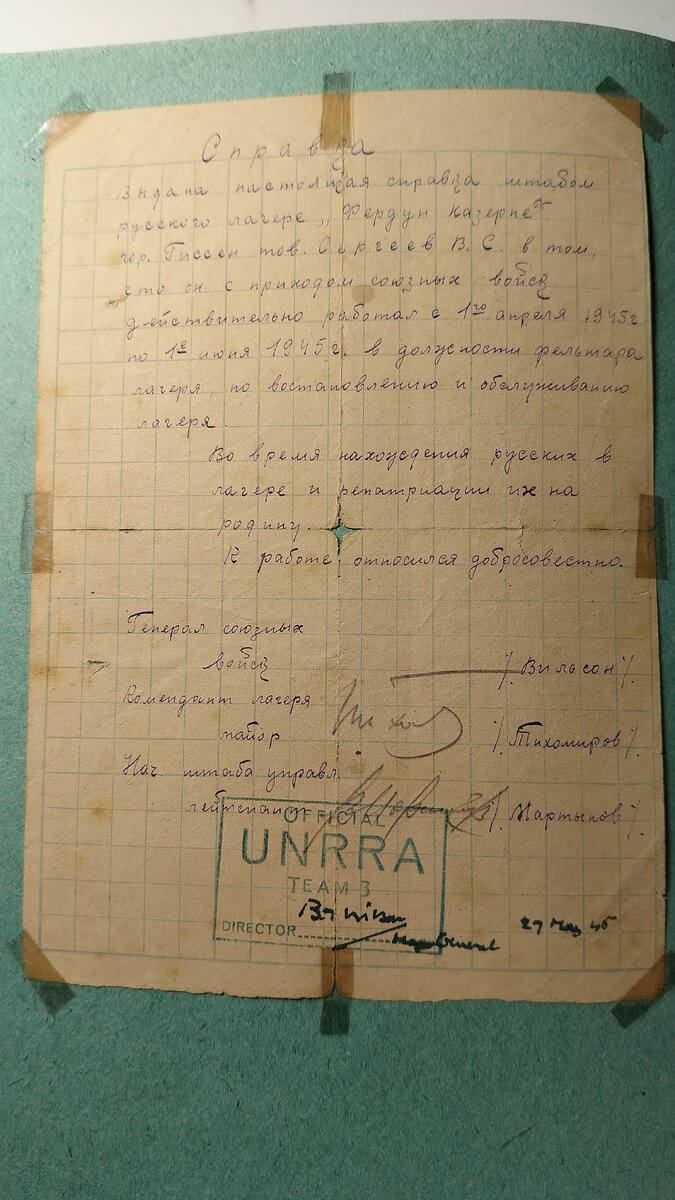 Справка
Выдана настоящая справка штабом
русского лагере „Фердун казерне"
гор. Гиссен тов. Сергеев В. С. в том,
что он с приходом союзных войск
действительно работал с 1го апреля 1945г
по 1е июня 1945г. в должности фельтшара
лагеря, по востановлению и обслуживанию
лагеря.
Во время нахождения русских в
лагере и репатриации их на
родину.
К работе относился добросовестно.
Генерал союзных
войск /. Вильсон /.
Комендант лагеря
майор /. Тихомиров /.
Нач. штаба управл.
лейтенант /. Мартынов /.
OFFICIAL
UNRRA
TEAM 3
DIRECTOR
Major General
29 May 45